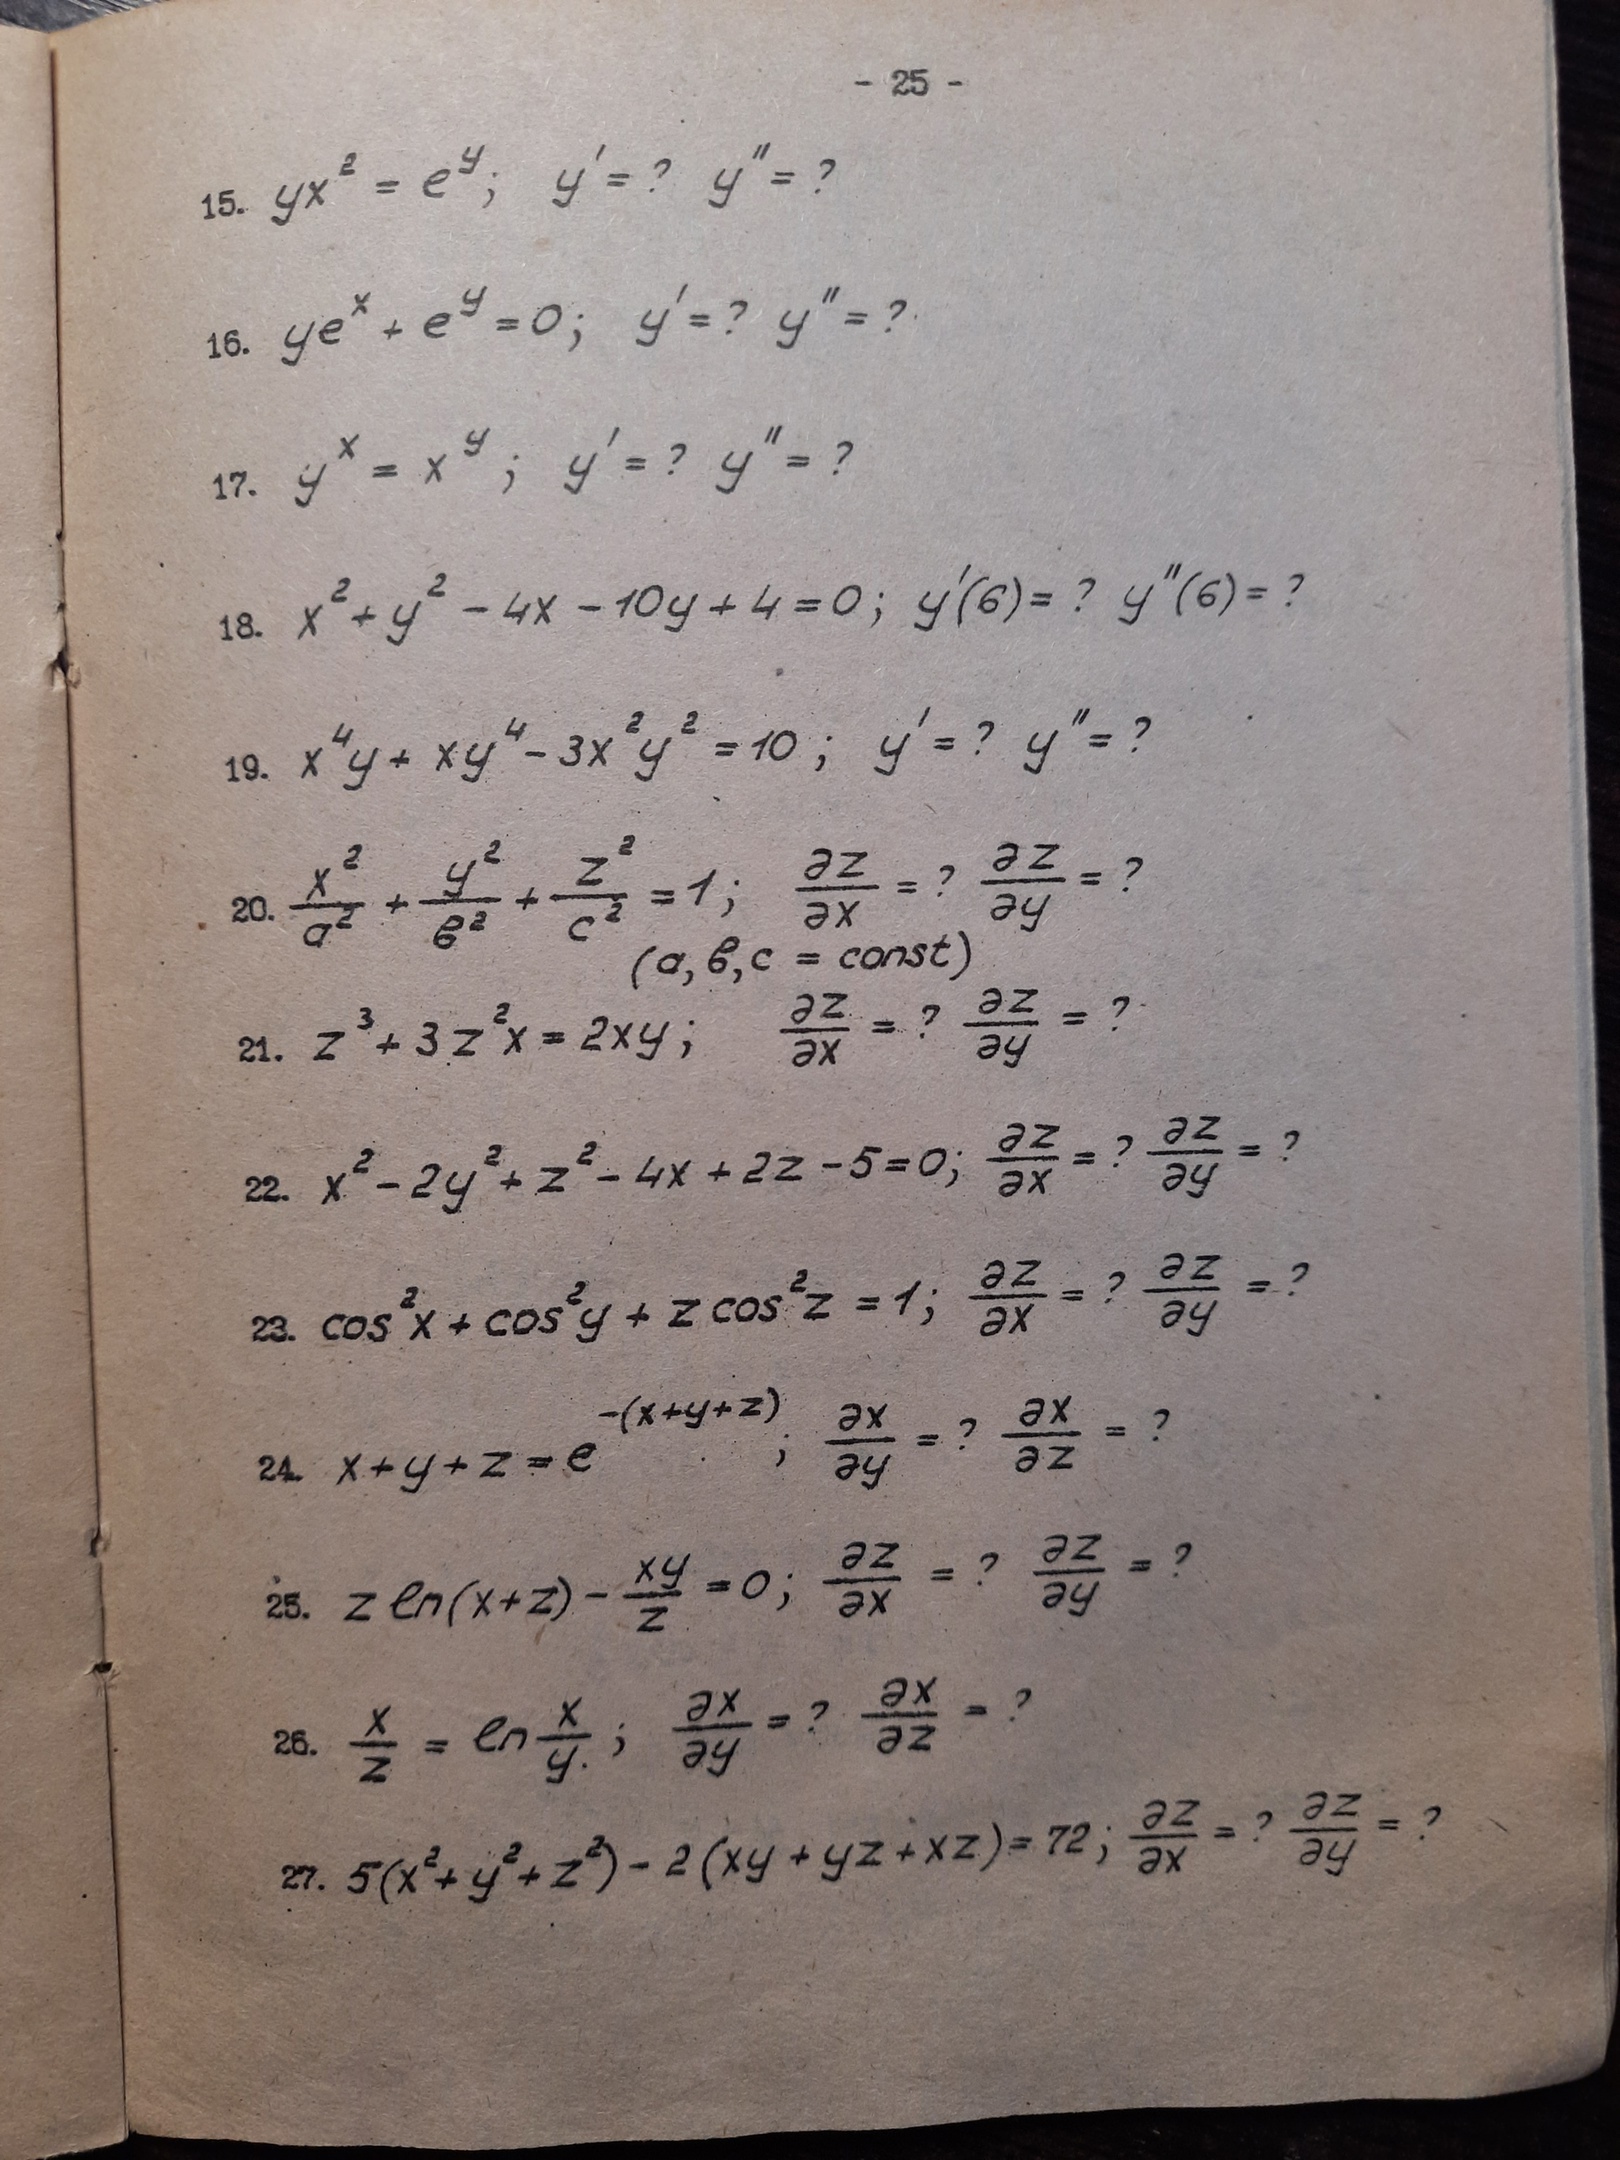 - 25 -
15. yx² = e^y; y' = ? y'' = ?
16. ye^x + e^y = 0; y' = ? y'' = ?
17. y^x = x^y; y' = ? y'' = ?
18. x² + y² - 4x - 10y + 4 = 0; y'(6) = ? y''(6) = ?
19. x⁴y + xy⁴ - 3x²y² = 10; y' = ? y'' = ?
20. x²/a² + y²/b² + z²/c² = 1; ∂z/∂x = ? ∂z/∂y = ?
(a, b, c = const)
21. z³ + 3z²x = 2xy; ∂z/∂x = ? ∂z/∂y = ?
22. x² - 2y² + z² - 4x + 2z - 5 = 0; ∂z/∂x = ? ∂z/∂y = ?
23. cos²x + cos²y + z cos²z = 1; ∂z/∂x = ? ∂z/∂y = ?
24. x + y + z = e^-(x+y+z); ∂x/∂y = ? ∂x/∂z = ?
25. z ln(x+z) - xy/z = 0; ∂z/∂x = ? ∂z/∂y = ?
26. x/z = ln x/y; ∂x/∂y = ? ∂x/∂z = ?
27. 5(x² + y² + z²) - 2(xy + yz + xz) = 72; ∂z/∂x = ? ∂z/∂y = ?